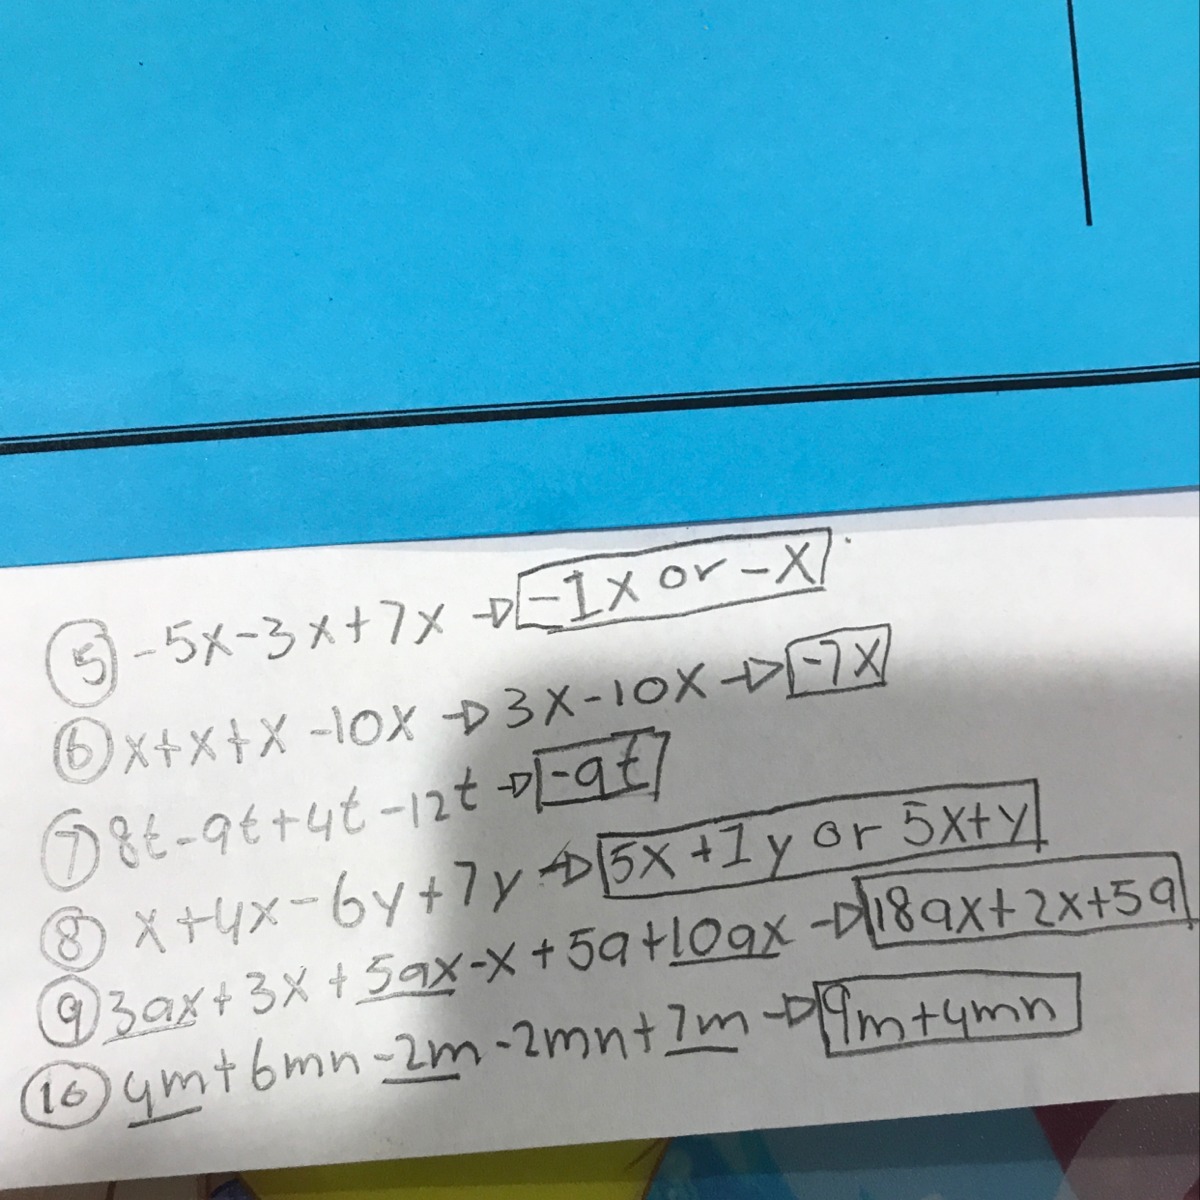 ⑤ -5x-3x+7x → -1x or -x
⑥ x+x+x -10x → 3x-10x → -7x
⑦ 8t-9t+4t-12t → -9t
⑧ x+4x-6y+7y → 5x+1y or 5x+y
⑨ 3ax+3x+5ax-x+5a+10ax → 18ax+2x+5a
⑩ 4m+6mn-2m-2mn+7m → 9m+4mn